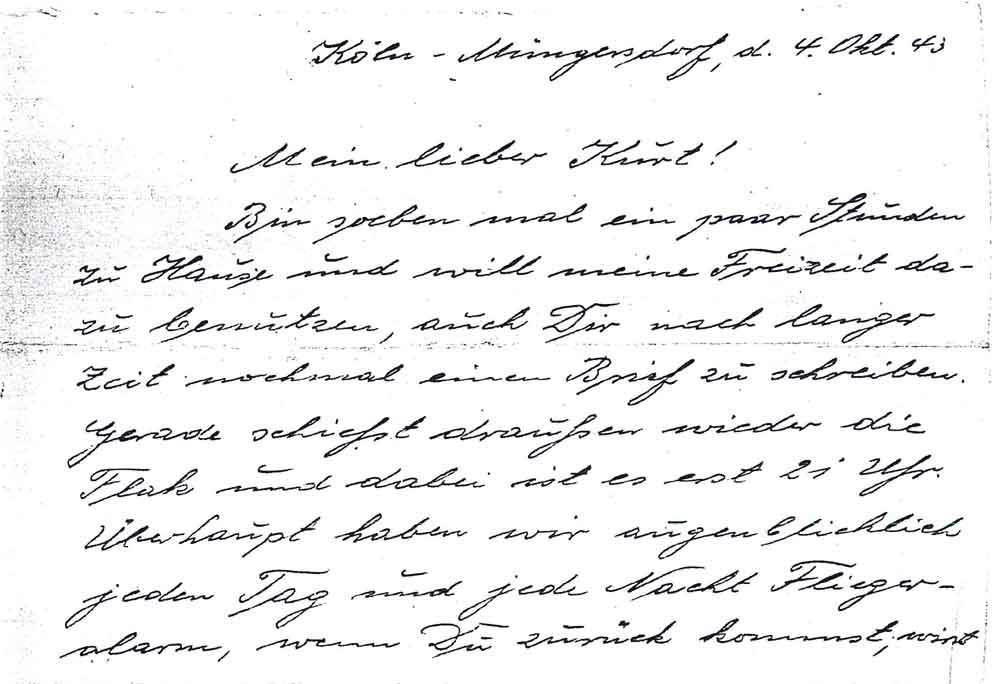 Köln-Müngersdorf, d. 4. Okt. 43
Mein lieber Kurt!
Bin soeben mal ein paar Stunden
zu Hause und will meine Freizeit da-
zu benutzen, auch Dir nach langer
Zeit nochmal einen Brief zu schreiben.
Gerade schießt draußen wieder die
Flak und dabei ist es erst 21 Uhr.
Überhaupt haben wir augenblicklich
jeden Tag und jede Nacht Flieger-
alarm, wenn Du zurück kommst, wirst